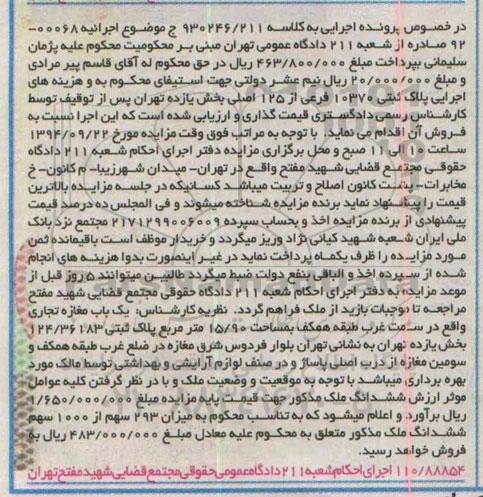 در خصوص پرونده اجرایی به کلاسه ۹۳۰۲۴۶/۲۱۱ ج موضوع اجرائیه ۰۰۰۶۸-
۹۲ صادره از شعبه ۲۱۱ دادگاه عمومی تهران مبنی بر محکومیت محکوم علیه پژمان
سلیمانی بپرداخت مبلغ ۴۶۳/۸۰۰/۰۰۰ ریال در حق محکوم له آقای قاسم پیر مرادی
و مبلغ ۲۰/۰۰۰/۰۰۰ ریال نیم عشر دولتی جهت استیفای محکوم به و هزینه های
اجرایی پلاک ثبتی ۱۰۳۷۰ فرعی از ۱۲۵ اصلی بخش یازده تهران پس از توقیف توسط
کارشناس رسمی دادگستری قیمت گذاری و ارزیابی شده است که این اجرا نسبت به
فروش آن اقدام می نماید. با توجه به مراتب فوق وقت مزایده مورخ ۱۳۹۴/۰۹/۲۲
ساعت ۱۰ الی ۱۱ صبح و محل برگزاری مزایده دفتر اجرای احکام شعبه ۲۱۱ دادگاه
حقوقی مجتمع قضایی شهید مفتح واقع در تهران- میدان شهرزیبا- م کانون- خ
مخابرات- پشت کانون اصلاح و تربیت میباشد کسانیکه در جلسه مزایده بالاترین
قیمت را پیشنهاد نماید برنده مزایده شناخته میشوند و فی المجلس ده درصد قیمت
پیشنهادی از برنده مزایده اخذ و بحساب سپرده ۲۱۷۱۲۹۹۰۰۶۰۰۹ مجتمع نزد بانک
ملی ایران شعبه شهید کیانی نژاد واریز میگردد و خریدار موظف است باقیمانده ثمن
مورد مزایده را ظرف یکماه پرداخت نماید در غیر اینصورت بدوا هزینه های انجام
شده از سپرده اخذ و الباقی بنفع دولت ضبط میگردد طالبین میتوانند ۵ روز قبل از
موعد مزایده به دفتر اجرای احکام شعبه ۲۱۱ دادگاه حقوقی مجتمع قضایی شهید مفتح
مراجعه تا موجبات بازید از ملک فراهم گردد. نظریه کارشناس: یک باب مغازه تجاری
واقع در سمت غرب طبقه همکف بمساحت ۱۵/۹۰ متر مربع پلاک ثبتی ۱۲۴/۳۶۱۸۳
بخش یازده تهران به نشانی تهران بلوار فردوس شرق مغازه در ضلع غرب طبقه همکف و
سومین مغازه از درب اصلی پاساژ و در صنف لوازم آرایشی و بهداشتی توسط مالک مورد
بهره برداری میباشد با توجه به موقعیت و وضعیت ملک و با در نظر گرفتن کلیه عوامل
موثر ارزش ششدانگ ملک مذکور جهت قیمت پایه مزایده مبلغ ۱/۶۵۰/۰۰۰/۰۰۰
ریال برآورد و اعلام میشود که به تناسب محکوم به میزان ۲۹۳ سهم از ۱۰۰۰ سهم
ششدانگ ملک مذکور متعلق به محکوم علیه معادل مبلغ ۴۸۳/۰۰۰/۰۰۰ ریال به
فروش خواهد رسید.
۱۱۰/۸۸۸۵۴ اجرای احکام شعبه ۲۱۱ دادگاه عمومی حقوقی مجتمع قضایی شهید مفتح تهران